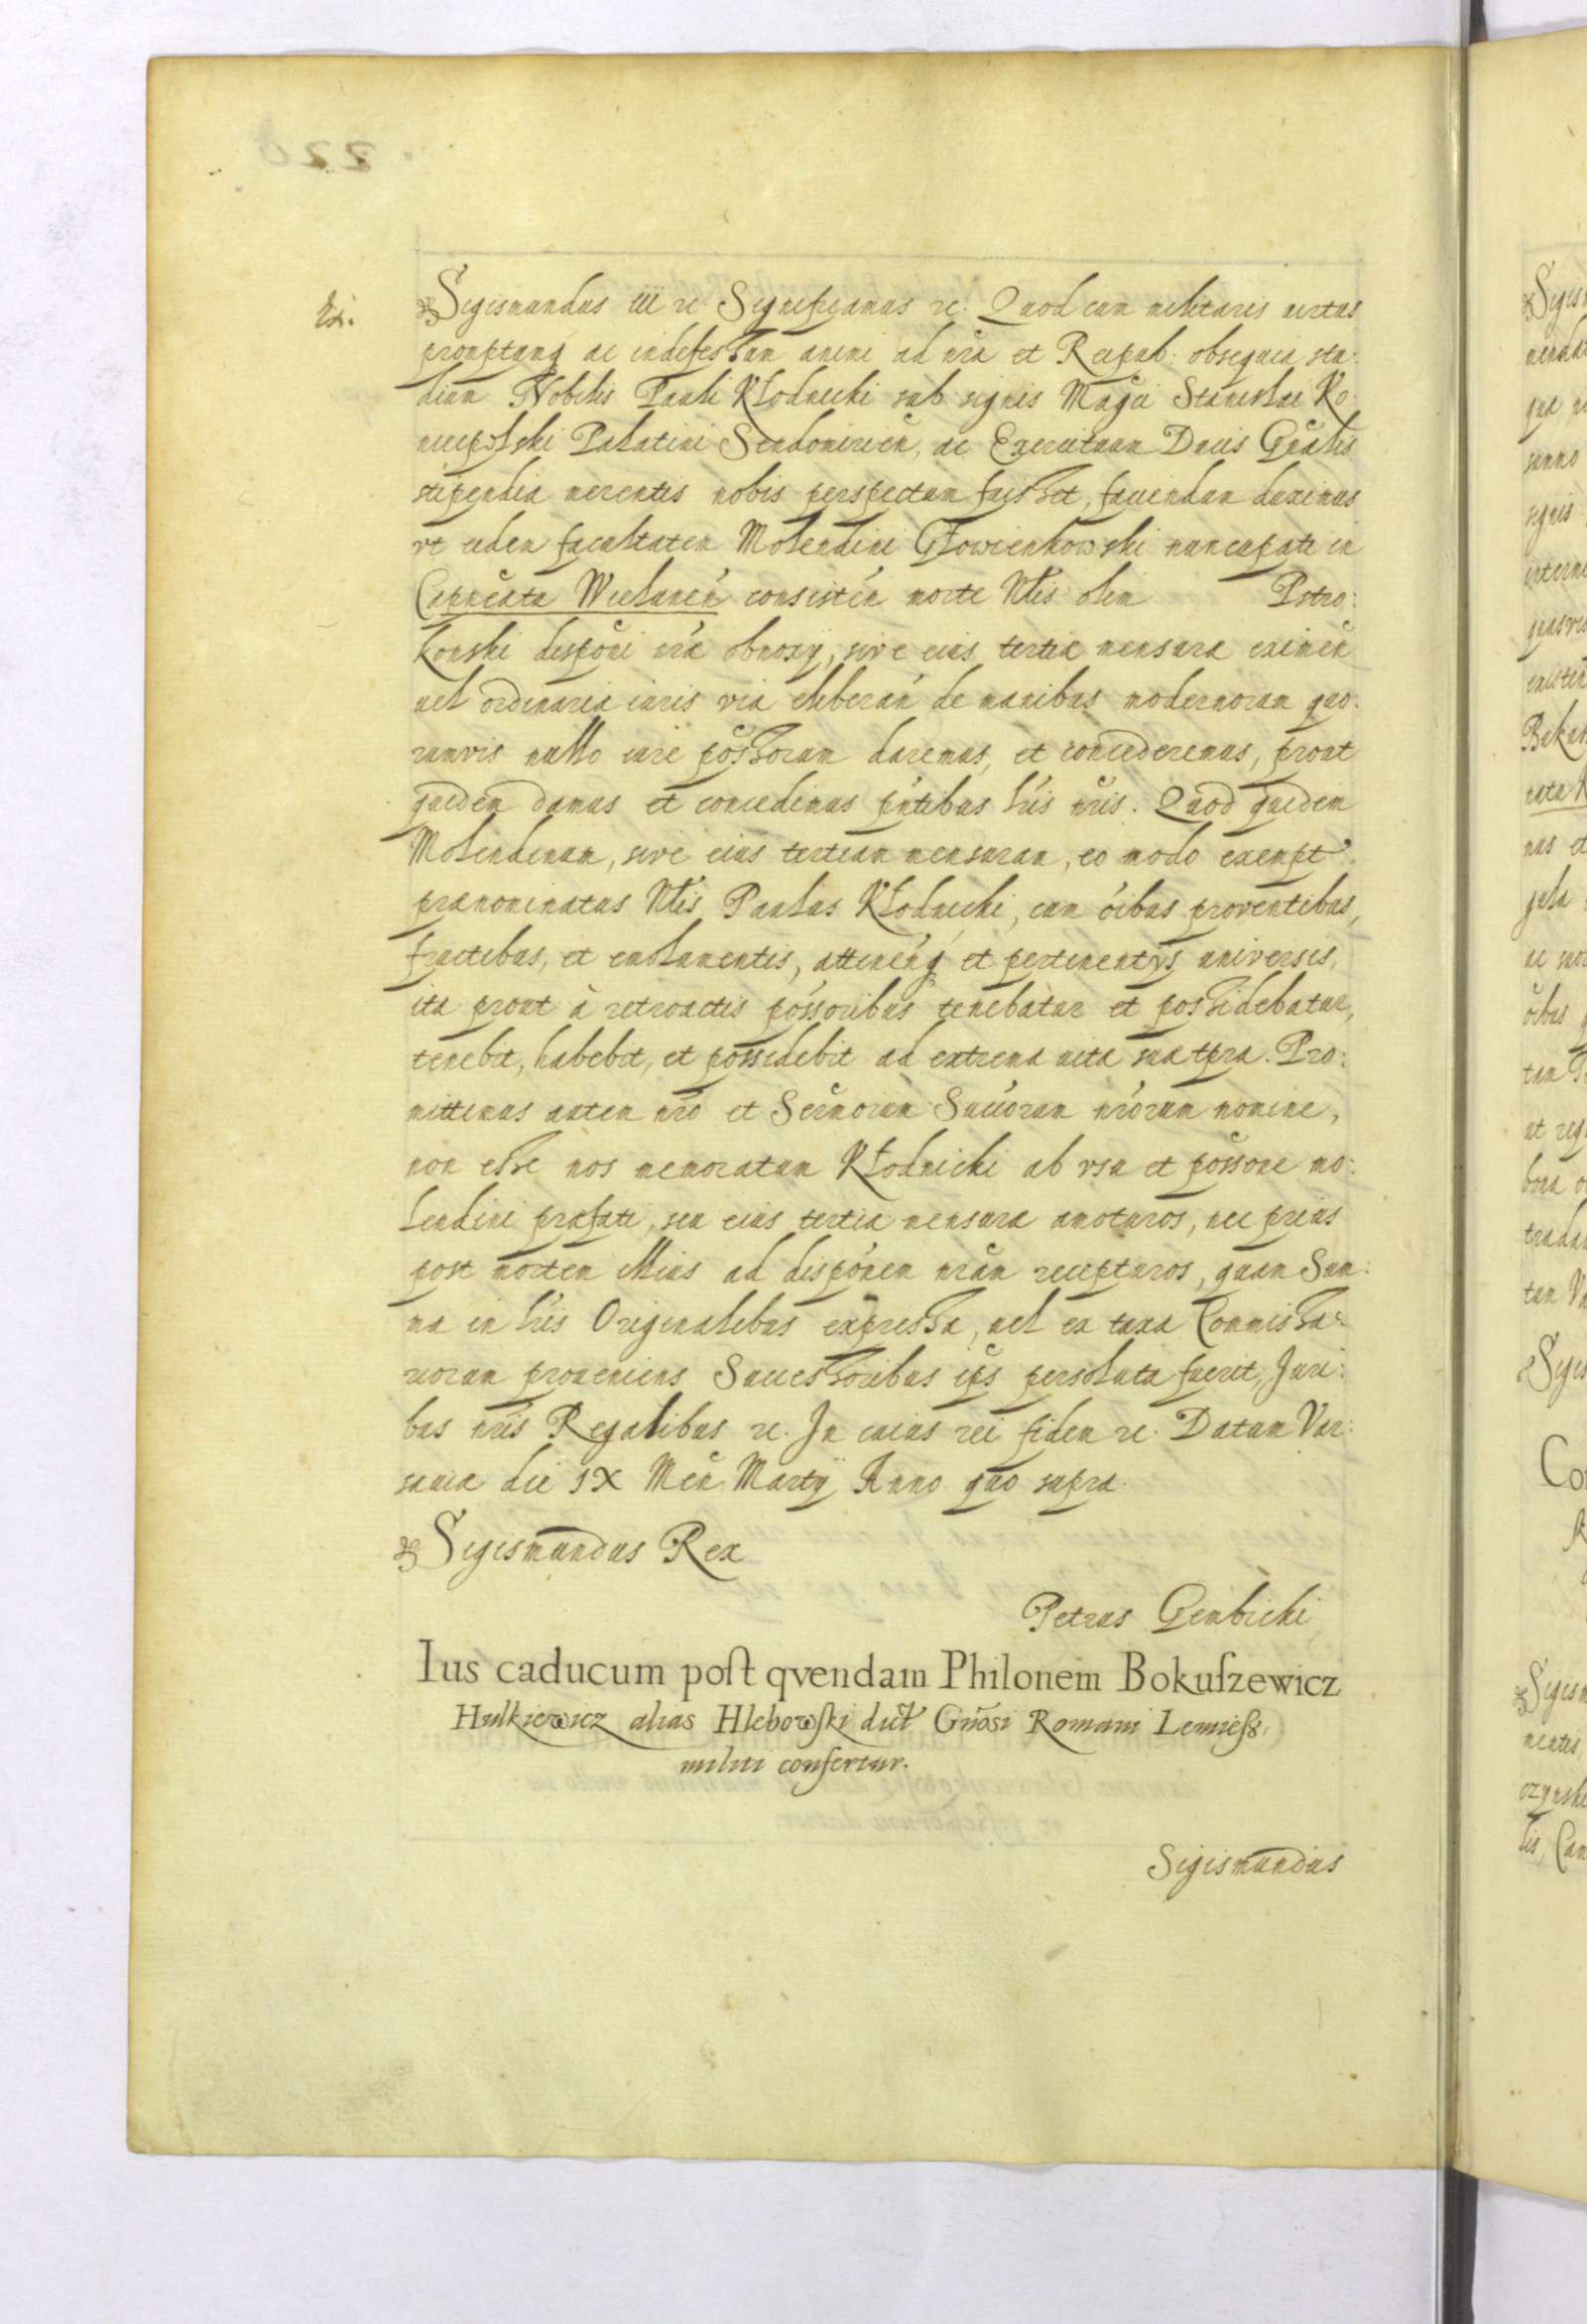 Ex.
Sigismundus III &c. Significamus &c. Quod cum militaris uirtus
promptumq ac indefessum animi ad nrã et Reipub: obsequia stu:
dium Nobilis Pauli Kłodnicki sub signis Magci Stanislai Ko:
niecpolski Palatini Sendomirien, ac Exercituum Ducis Gñalis
stipendia merentis nobis perspectum fuisset, faciendum duximus
vt eidem facultatem Molendini Głowienkowski nuncupati in
Capñeatu Wielunen consisten morte Nlis olim Pstro:
konski dispõni nrã obnoxij, sive eius tertia mensura eximen
uel ordinaria iuris via eliberan de manibus modernorum quo:
rumvis nullo iure possorum daremus, et concederemus, prout
quidem damus et concedimus pñtibus lris nris. Quod quidem
Molendinum, sive eius tertiam mensuram, eo modo exempt
prænominatus Nlis Paulus Kłodnicki, cum oibus proventibus,
fructibus, et emolumentis, attinenq et pertinentys universis,
ita prout à retroactis possoribus tenebatur et possidebatur,
tenebit, habebit, et possidebit ad extrema uitæ suæ tpra. Pro:
mittimus autem nro et Sermorum Succorum nrorum nomine,
non esse nos memoratum Kłodnicki ab vsu et possone mo:
lendini præfati, seu eius tertia mensura amoturos, nec prius
post mortem illius ad disponem nram recepturos, quam Sum:
ma in lris Originalibus expressa, uel ex taxa Commissa:
riorum proueniens Successoribus ips persoluta fuerit, Juri:
bus nris Regalibus &c. In cuius rei fidem &c. Datum Var:
sauiæ die IX Men Martij Anno quo supra.
Sigismundus Rex
Petrus Gembicki
Ius caducum poſt qvendam Philonem Bokuſzewicz
Hulkiewicz alias Hlebowſki dict Gñosi Romani Lemieſz
militi confertur.
Sigismundus